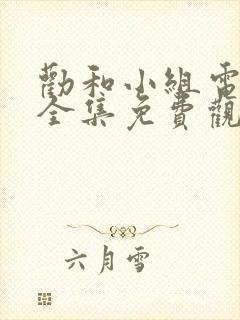 勸和小組電
全集免費觀
六月雪